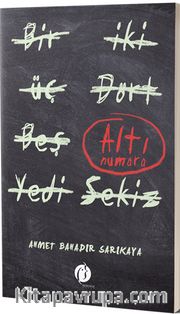 Bir iki
üç Dört
Beş Altı
numara
Yedi Sekiz
AHMET BAHADIR SARIKAYA
Kitapavrupa.com